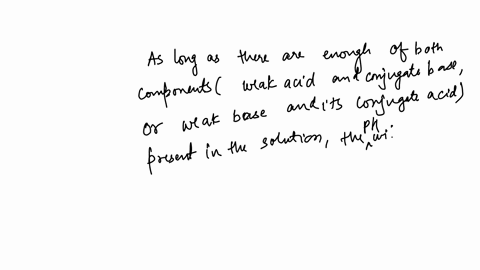 As long as there are enough of both
components ( weak acid and conjugate base,
or weak base and its conjugate acid)
present in the solution, the pH wi: